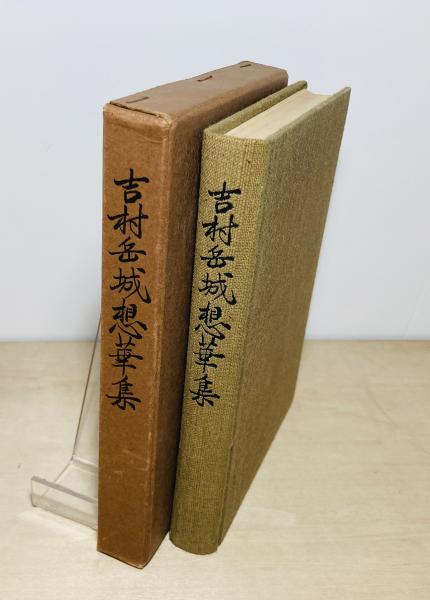 吉村岳城想華集
吉村岳城想華集